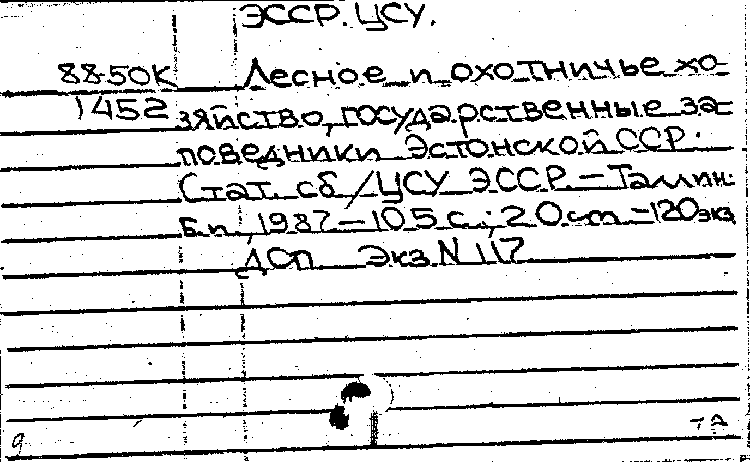 ЭССР. ЦСУ.
88-50К Лесное и охотничье хо-
1452 зяйство, государственные за-
поведники Эстонской ССР.
Стат. сб/ЦСУ ЭССР. - Таллин:
Б.и., 1987 - 105 с.; 20 см - 120 экз
ДСП Экз. N 117
9